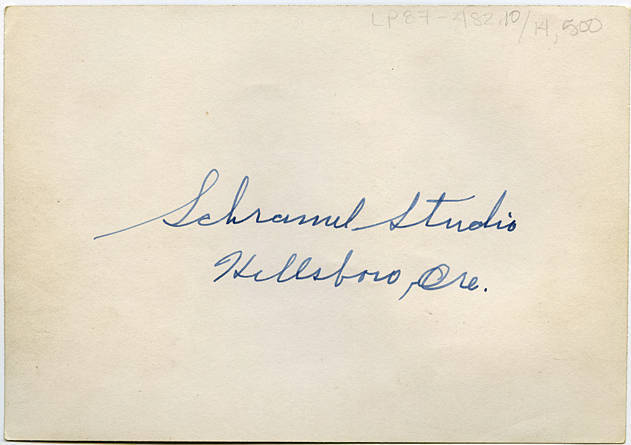 LP87-482.10/14,500
Schramel Studio
Hillsboro, Ore.